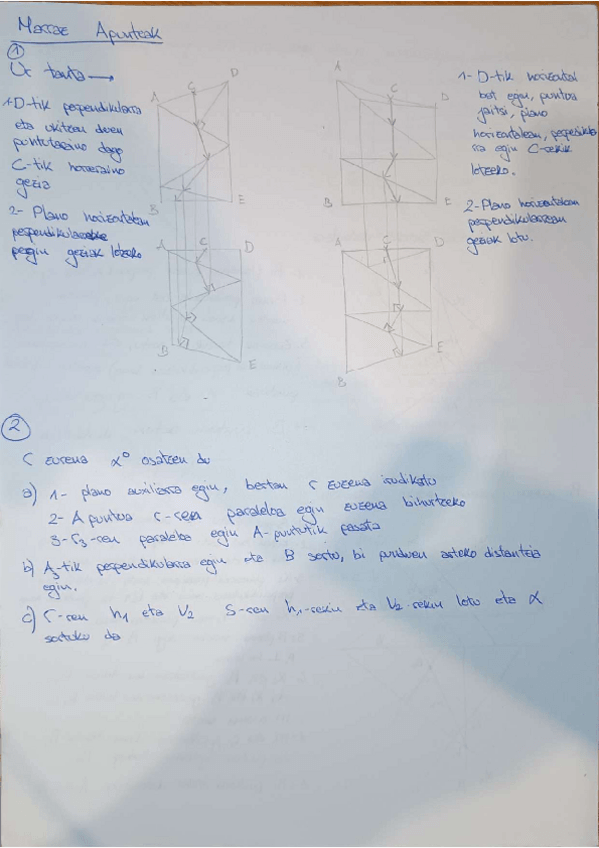 Marraz Apunteak
①
Ur tanta →
1-D-tik perpendikularra
eta ukitzen duen
puntutaraino dago
C-tik horreraino
gezia
2- Plano horizontalean
perpendikularra
geziak lotzeko
A
C
D
B
E
A
C
D
B
E
A
C
D
B
E
A
C
D
B
E
1- D-tik horizontal
bat egin, puntua
jaitsi, plano
horizontalean, perpendikula
rra egin C-rekin
lotzeko.
2-Plano horizontalean
perpendikularrean
geziak lotu.
②
r zuzena α° osatzen du
a) 1- plano auxiliarra egin, bertan r zuzena irudikatu
2- A puntua r-ren paraleloa egin zuzena bihurtzeko
3-r3-ren paraleloa egin A-puntutik pasata
b) A3-tik perpendikularra egin eta B sortu, bi puntuen arteko distantzia
egin.
c) r-ren h1 eta V2 S-ren h1-rekin eta V2-rekin lotu eta α
sortuko da